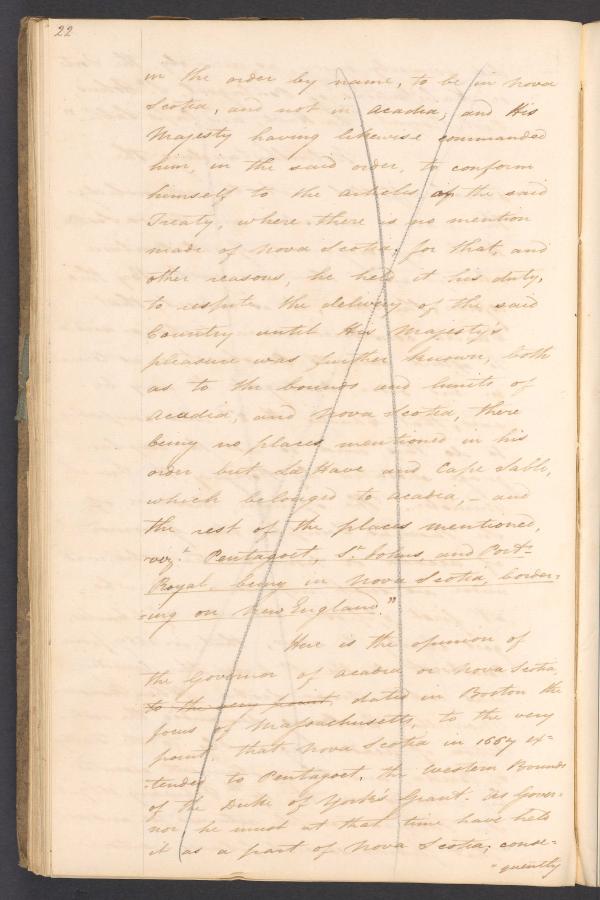 22
in the order by name, to be in Nova
Scotia, and not in Acadia, and His
Majesty having likewise commanded
him, in the said order, to conform
himself to the articles of the said
Treaty, where there is no mention
made of Nova Scotia, for that, and
other reasons, he held it his duty,
to respite the delivery of the said
Country until His Majesty's
pleasure was further known, both
as to the bounds and limits of
Acadia, and Nova Scotia, there
being no places mentioned in his
order but La Have and Cape Sable,
which belonged to Acadia, - and
the rest of the places mentioned,
viz.t Pentagoet, St. Johns, and Port-
Royal, being in Nova Scotia, border=
=ing on New England."
Here is the opinion of
the Governor of Acadia or Nova Scotia
to the very point, dated in Boston the
focus of Massachusetts, to the very
point, that Nova Scotia in 1667 ex=
tended to Pentagoet, the Western Bounds
of the Duke of York's Grant. As Gover=
nor he must at that time have held
it as a part of Nova Scotia; conse=
=quently